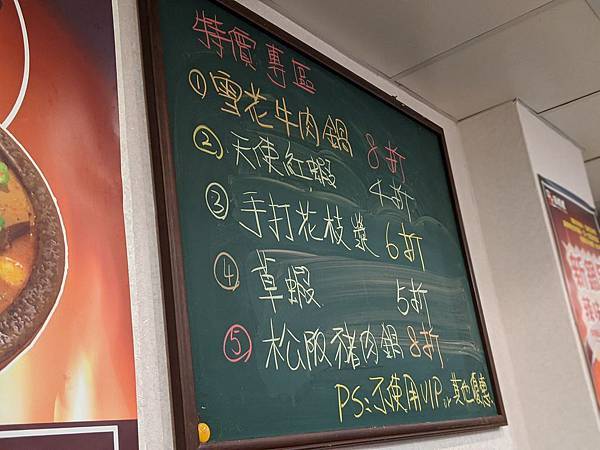 特價專區
①雪花牛肉鍋 8折
②天使紅蝦 4折
③手打花枝漿 6折
④草蝦 5折
⑤松阪豬肉鍋 8折
PS:不使用VIP or 其他優惠.